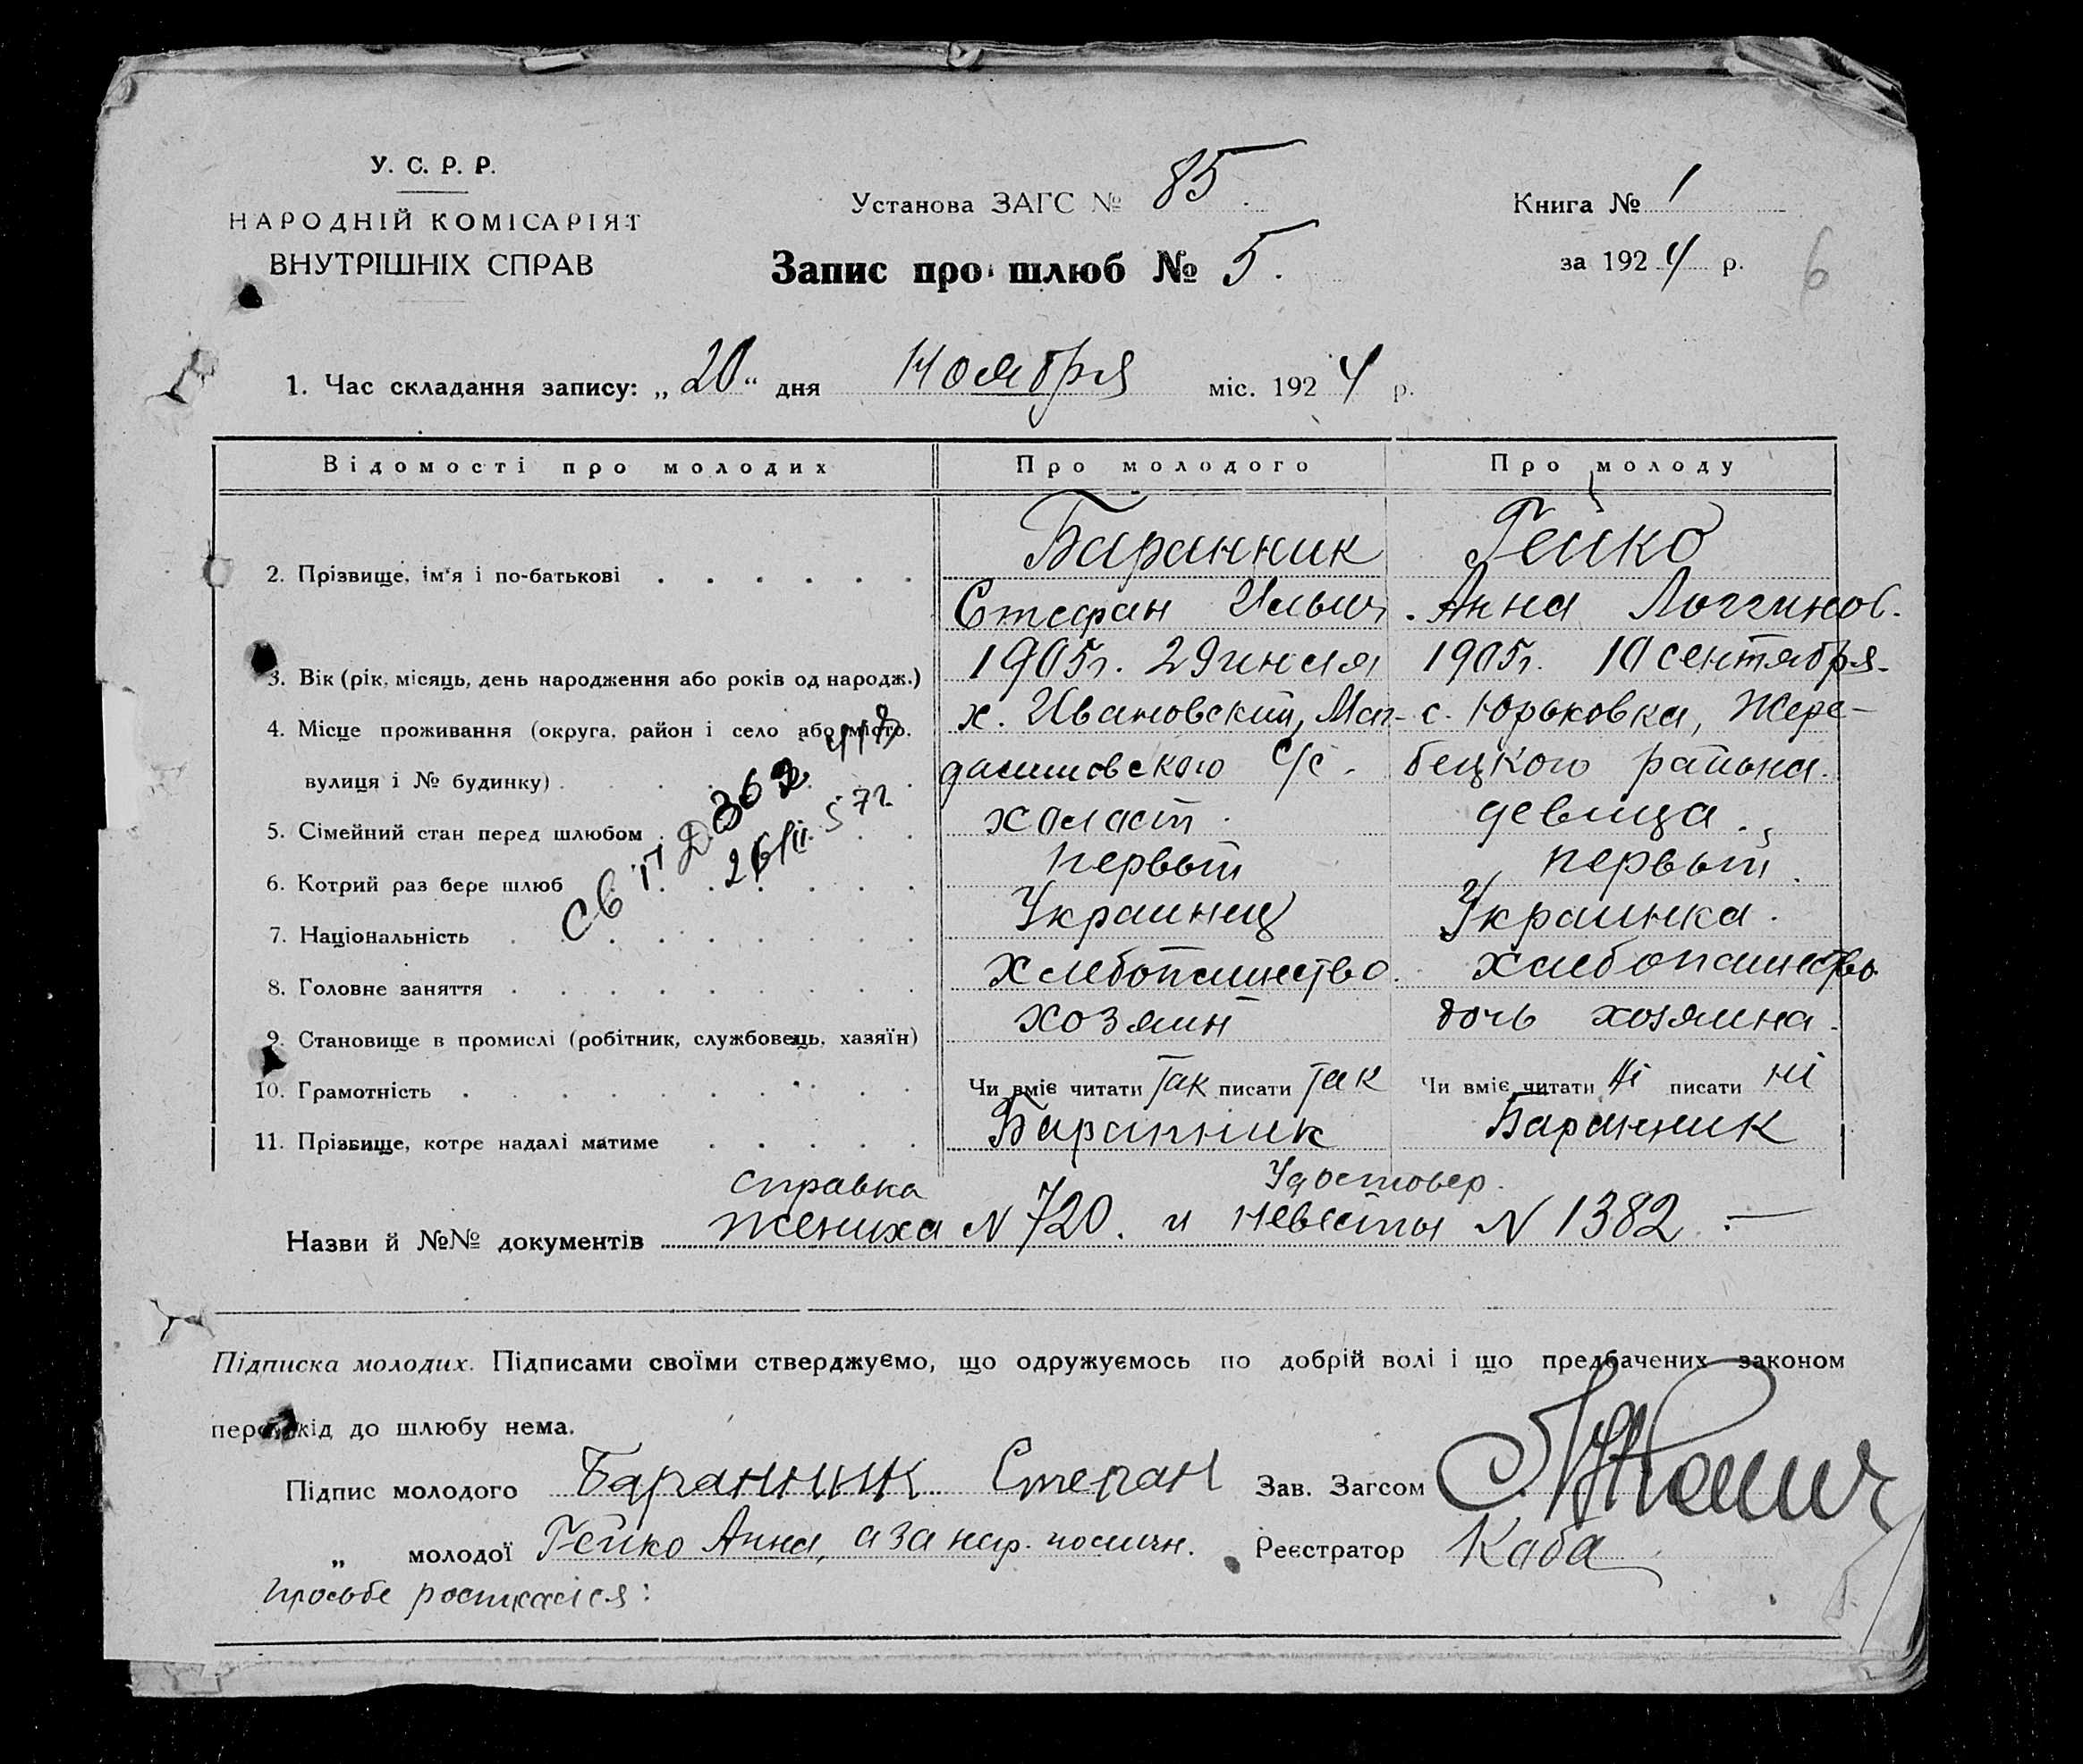 У. С. Р. Р.
НАРОДНІЙ КОМІСАРІЯТ
ВНУТРІШНІХ СПРАВ
Установа ЗАГС № 85
Запис про шлюб № 5.
Книга № 1
за 1924 р.
6
1. Час складання запису: „20“ дня Ноября міс. 1924 р.
Відомості про молодих Про молодого Про молоду
Баранник Гейко
2. Прізвище, ім'я і по-батькові
Стефан Ильич Анна Логгинов.
3. Вік (рік, місяць, день народження або років од народж.) 1905г. 29 июля 1905г. 10 сентября.
4. Місце проживання (округа, район і село або місто, х. Ивановский, Маг- с. Юрьковка, Жере-
вулиця і № будинку) далиновского с/с. бецкого района.
5. Сімейний стан перед шлюбом холост. девица.
6. Котрий раз бере шлюб первый первый.
7. Національність Украинец Украинка.
8. Головне заняття хлебопашество. хлебопашество
9. Становище в промислі (робітник, службовець, хазяїн) хозяин дочь хозяина.
10. Грамотність Чи вміє читати так писати так Чи вміє читати ні писати ні
11. Прізвище, котре надалі матиме Баранник Баранник
справка Удостовер.
Назви й №№ документів жениха N 720. и невесты N 1382.
Підписка молодих. Підписами своїми стверджуємо, що одружуємось по добрій волі і що предбачених законом
перешкід до шлюбу нема.
Підпис молодого Баранник Степан Зав. Загсом
„ молодої Гейко Анна, а за нер. Реєстратор Каба
просьбе